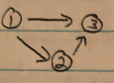 ① → ③
②